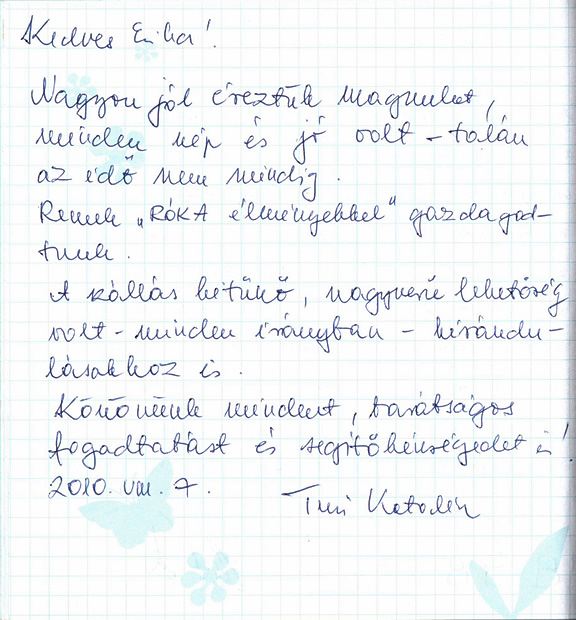 Kedves Erika!
Nagyon jól éreztük magunkat,
minden szép és jó volt - talán
az idő nem mindig.
Remek "RÓKA élményekkel" gazdagod-
tunk.
A szállás kitűnő, nagyszerű lehetőség
volt - minden irányban - kirándu-
lásokhoz is.
Köszönünk mindent, barátságos
fogadtatást és segítőkészségedet is!
2010. VIII. 7.
Katalin